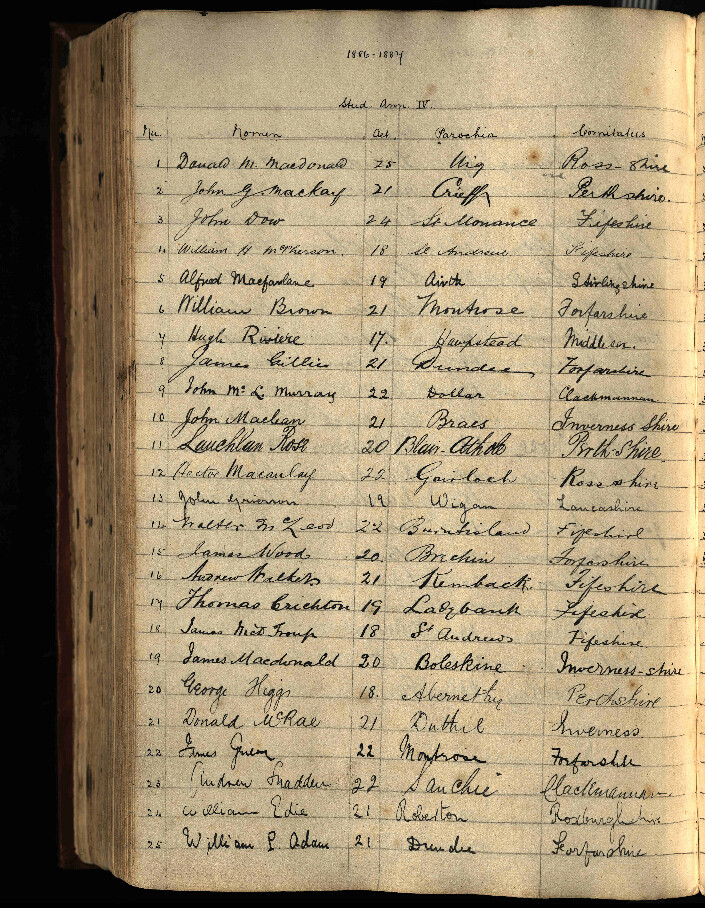 1886-1887
Stud. Ann. IV.
Nu. Nomen Aet. Parochia Comitatus
1 Donald M. Macdonald 25 Uig Ross-shire
2 John G Mackay 21 Crieff Perthshire.
3 John Dow 24 St Monance Fifeshire
4 William H McPherson. 18 St Andrews Fifeshire
5 Alfred Macfarlane 19 Airth Stirlingshire
6 William Brown 21 Montrose Forfarshire
7 Hugh Riviere 17. Hampstead Middlesex.
8 James Gillies 21 Dundee Forfarshire
9 John Mc L. Murray 22 Dollar Clackmannan
10 John Maclean 21 Braes Inverness Shire
11 Lauchlan Rose 20 Blair-Athole Perth-Shire.
12 Hector Macaulay 22 Gairloch Ross shire
13 John Grierson 19 Wigan Lancashire
14 Walter McLeod 22 Burntisland Fifeshire
15 James Wood 20. Brechin Forfarshire
16 Andrew Walker 21 Kemback Fifeshire
17 Thomas Crichton 19 Ladybank Fifeshire
18 James Troup 18 St Andrews Fifeshire.
19 James Macdonald 20 Boleskine Inverness-shire
20 George Higgs 18. Abernethy Perthshire
21 Donald McRae 21 Duthil Inverness
22 James 22 Montrose Forfarshire
23 Andrew Snadden 22 Sauchie Clackmannan
24 William Edie 21 Roberton Roxburghshire
25 William P. Adam 21 Dundee Forfarshire